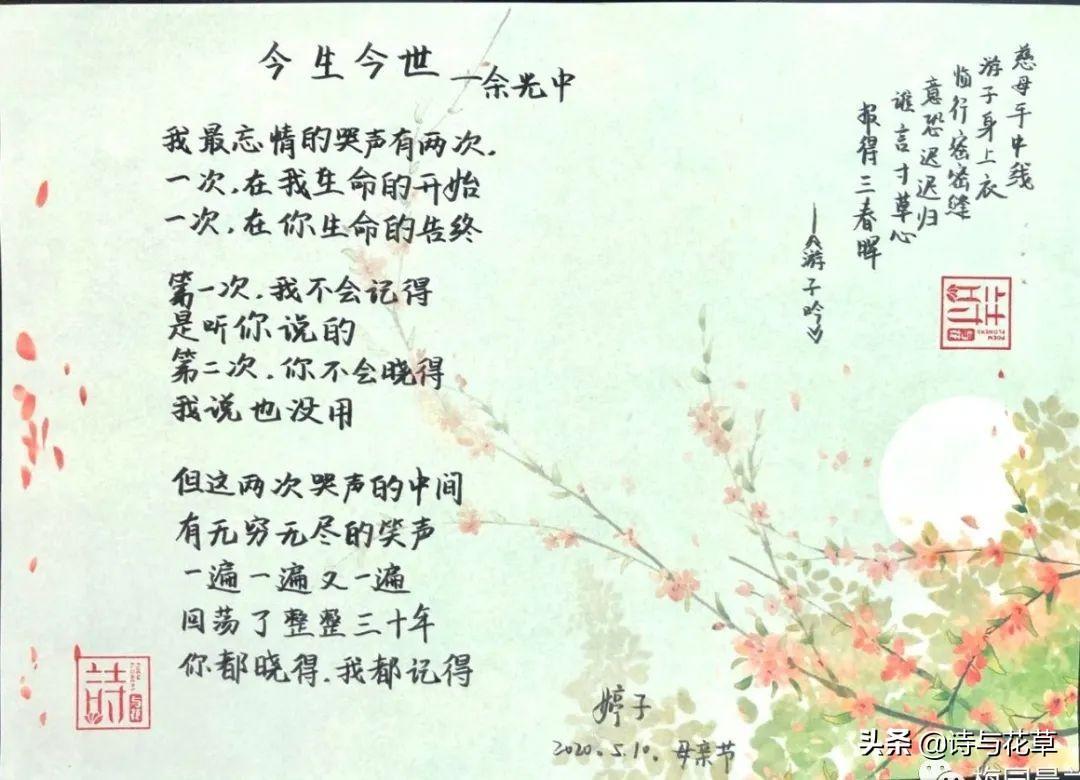 今生今世
—余光中
我最忘情的哭声有两次.
一次.在我生命的开始
一次.在你生命的告终
第一次.我不会记得
是听你说的
第二次.你不会晓得
我说也没用
但这两次哭声的中间
有无穷无尽的笑声
一遍一遍又一遍
回荡了整整三十年
你都晓得.我都记得
慈母手中线
游子身上衣
临行密密缝
意恐迟迟归
谁言寸草心
报得三春晖
—《游子吟》
詩
与花
POEM
FLOWERS
詩
与花
婷子
2020.5.10.母亲节
头条 @诗与花草